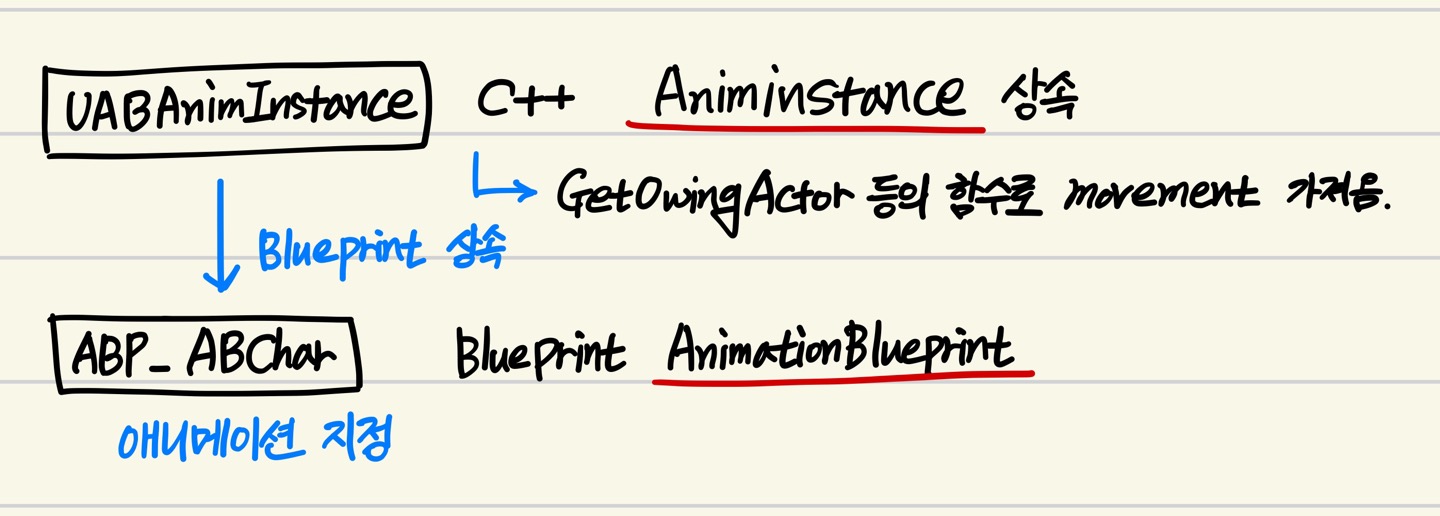 UABAnimInstance C++ Animinstance 상속
GetOwingActor 등의 함수로 movement 가져옴.
Blueprint 상속
ABP_ABChar Blueprint AnimationBlueprint
애니메이션 지정